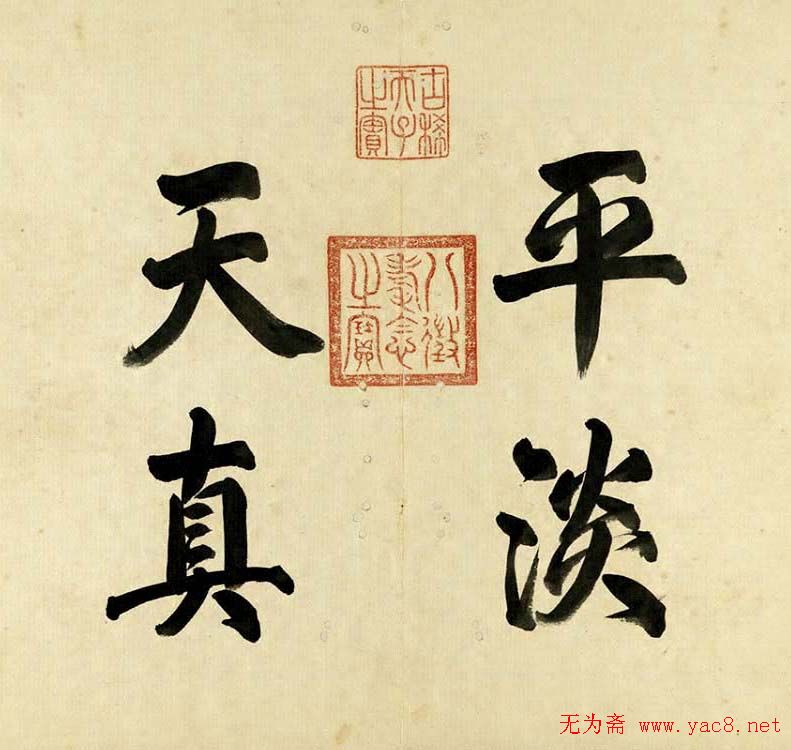 平淡
天真
古稀天子之寶
八徵耄念之寶
无为斋 www.yac8.net